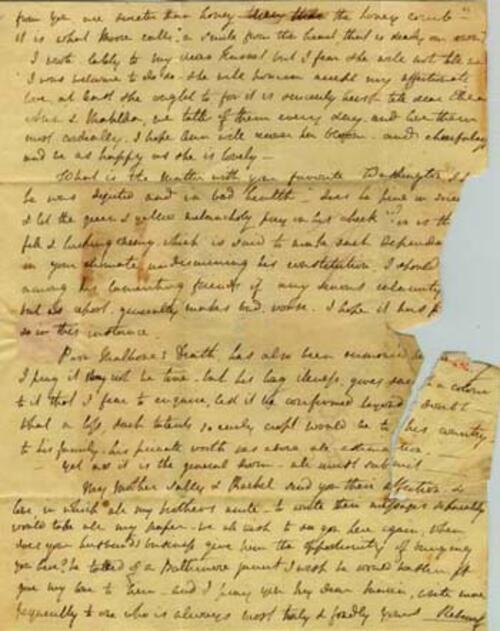 from you are sweeter than honey the honey comb"
it is what Moore calls "a smile from the heart that is dearly our own"
I wrote lately to my dear but I fear she will not
I was welcome to do so. she will however my affectionate
love, at least she ought to for it is sincerely hers tell dear
& we talk of them every day, and love them
most cordially. I hope Ann will recover her bloom and chearfulness
and be as happy as she is lovely —
What is the matter with your favorite Washington I
he was dejected and in bad health — does he pine in
& let the green & yellow melancholy prey on his cheek? or is the
fell & lurking enemy which is said to make such
in your climate undermining his constitution. I should
among his lamenting friends of any serious calamity
but as report generally makes bad, worse. I hope it has
so in this instance.
Poor Death, has also been
I pray it may not be true. but his long illness, gives such a colour
to it that I fear to enquire, lest it be confirmed beyond a doubt
What a loss such talents so early cropt would be to his country
to his family. his private worth was above all
yet as it is the general doom all must submit
My Mother Sally & Rachel send you their affection &
love in which all my brothers unite. to write their messages separately
would take all my paper. we all wish to see you here again, when
does your husband's business give him the opportunity of bringing
you here? he talked of a Baltimore I wish he would hasten it
give my love to them and I pray you my dear write more
frequently to one who is always most truly & fondly yours